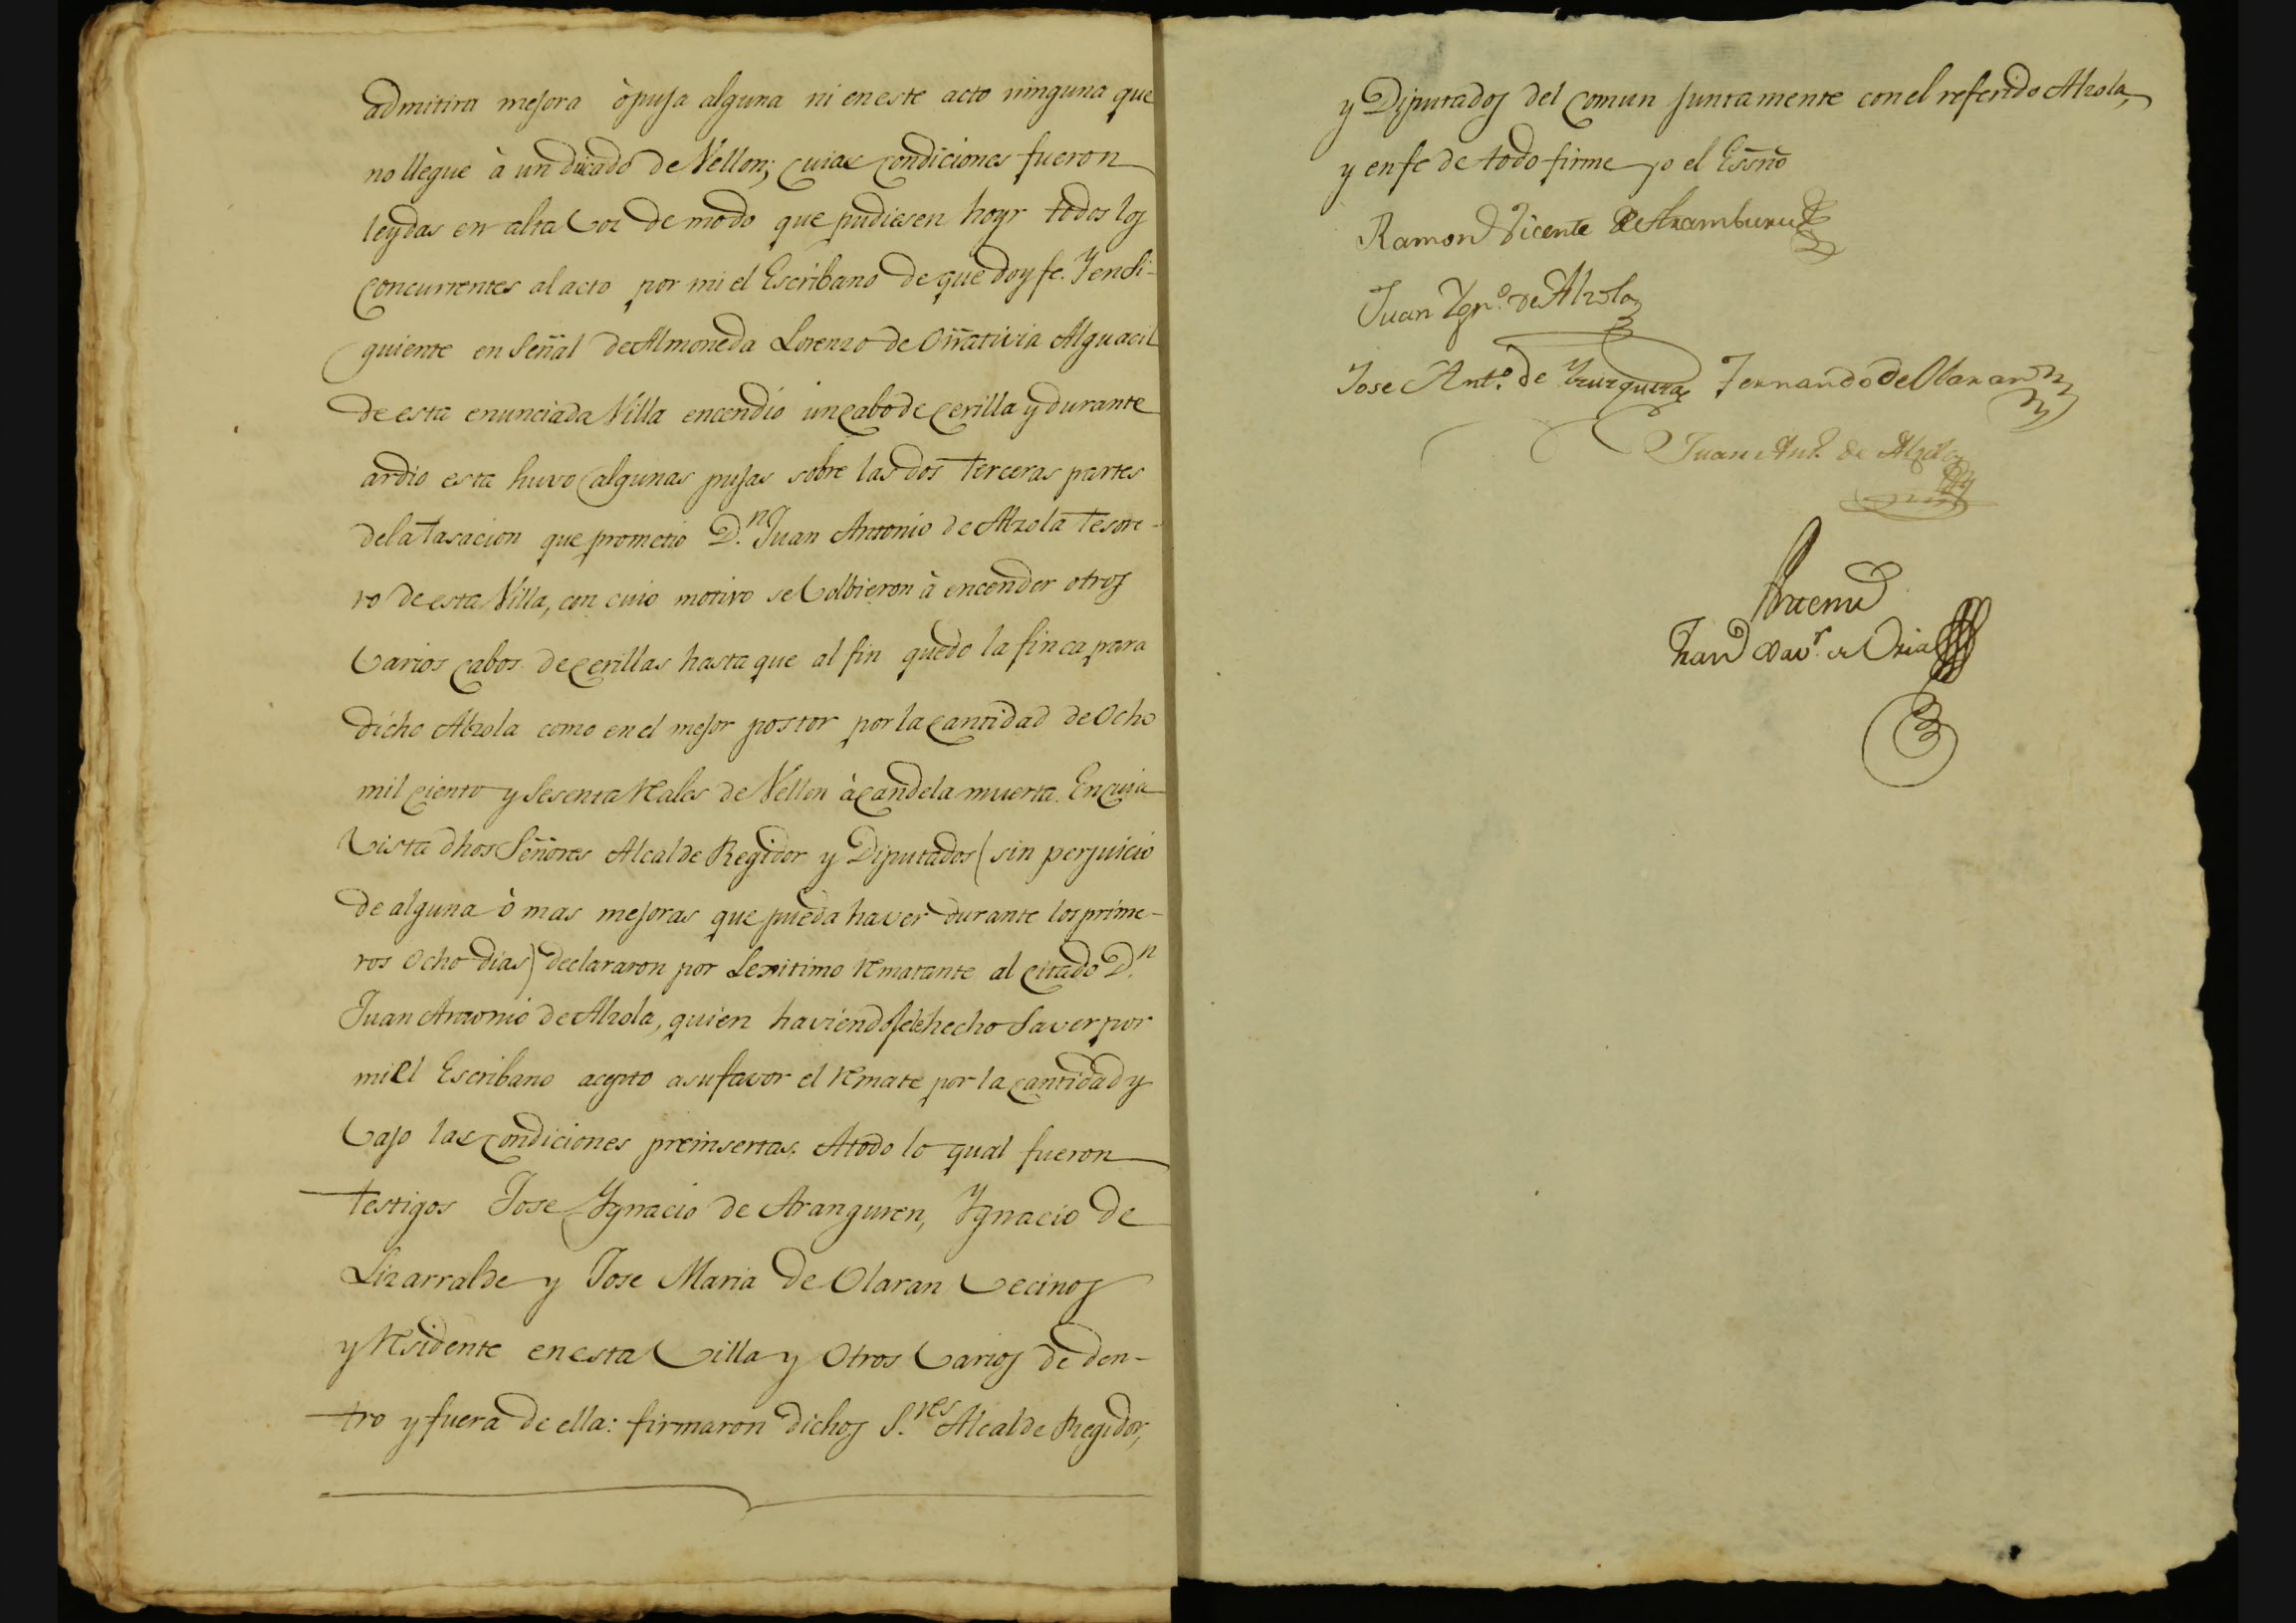 admitira mejora ò puja alguna ni en este acto ninguna que
no llegue à un ducado de Vellon; cuias condiciones fueron
leydas en alta voz de modo que pudiesen hoyr todos los
concurrentes al acto por mi el Escribano de que doy fe. Y en si-
guiente en Señal de Almoneda Lorenzo de Oñativia Alguacil
de esta enunciada Villa encendio un cabo de cerilla y durante
ardio esta huvo algunas pujas sobre las dos terceras partes
de la tasacion que prometio D.n Juan Antonio de Alzola tesore-
ro de esta Villa, con cuio motivo se volbieron à encender otros
varios cabos de cerillas hasta que al fin quedo la finca para
dicho Alzola como en el mejor postor por la cantidad de Ocho
mil ciento y sesenta reales de Vellon à candela muerta. En cuia
vista dhos Señores Alcalde Regidor y Diputados (sin perjuicio
de alguna ò mas mejoras que pueda haver durante los prime-
ros Ocho dias) declararon por Lexitimo rematante al citado D.n
Juan Antonio de Alzola, quien haviendosele hecho saver por
mi el Escribano acepto a su favor el remate por la cantidad y
vajo las condiciones preinsertas. A todo lo qual fueron
testigos Jose Ygnacio de Aranguren, Ygnacio de
Lizarralde y Jose Maria de Olaran vecinos
y residente en esta villa y Otros varios de den-
tro y fuera de ella: firmaron dichos S.res Alcalde Regidor,
y Diputados del Comun juntamente con el referido Alzola,
y en fe de todo firme yo el Essno
Ramon Vicente de Aramburu
Juan Ygn.o de Alzola
Jose Ant.o de Fernando de Olaran
Juan Ant.o de Alzola
Antemi
de Oria